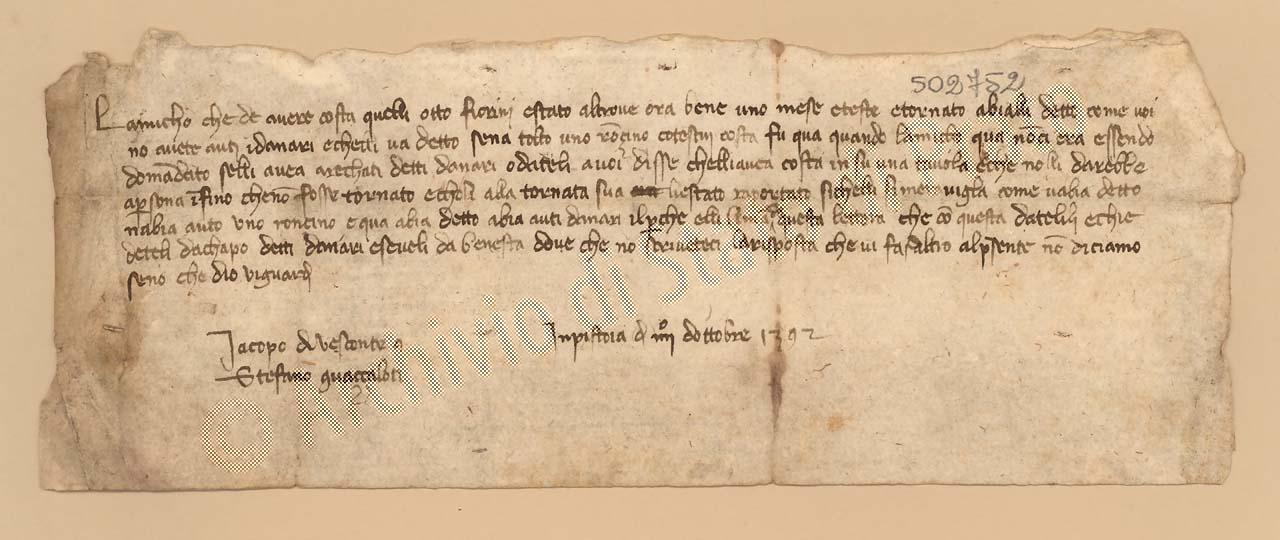 502752
Lamicho che de avere costa queli otto fiorini estato altrove ora bene uno mese eteste etornato abiālli detto come voi
nō avete auti idanari echelli va detto sena tolto uno rōcino cotestui costa fu qua quando lamicho qua nōci era essendo
domādato selli avea arechati detti danari odateli avoi disse chelliavea costa in su una tavola eche nolli darebbe
a psona īfino chenō fosse tornato echosi alla tornata sua ve stato raportato sichelli si meraviglā come vabia detto
nabia auto uno roncino e qua abia detto abia auti danari ilpche elli questa lettera che cō questa dateli echie
deteli dachapo detti danari eseveli da benesta dove che no scriveteci la risposta che vi fa altro alpsente nō diciamo
seno che dio viguardi
Jacopo di vesconte
Stefano guazzaloti
Inpistoia dì iiii dottobre 1392
© Archivio di Stato